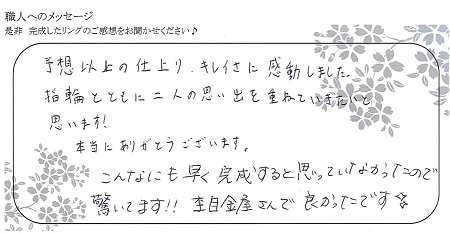 職人へのメッセージ
是非 完成したリングのご感想をお聞かせください♪
予想以上の仕上り、キレイさに感動しました。
指輪とともに二人の思い出を重ねていきたいと
思います!
本当にありがとうございます。
こんなにも早く完成すると思っていなかったので
驚いてます!! 杢目金屋さんで良かったです☆